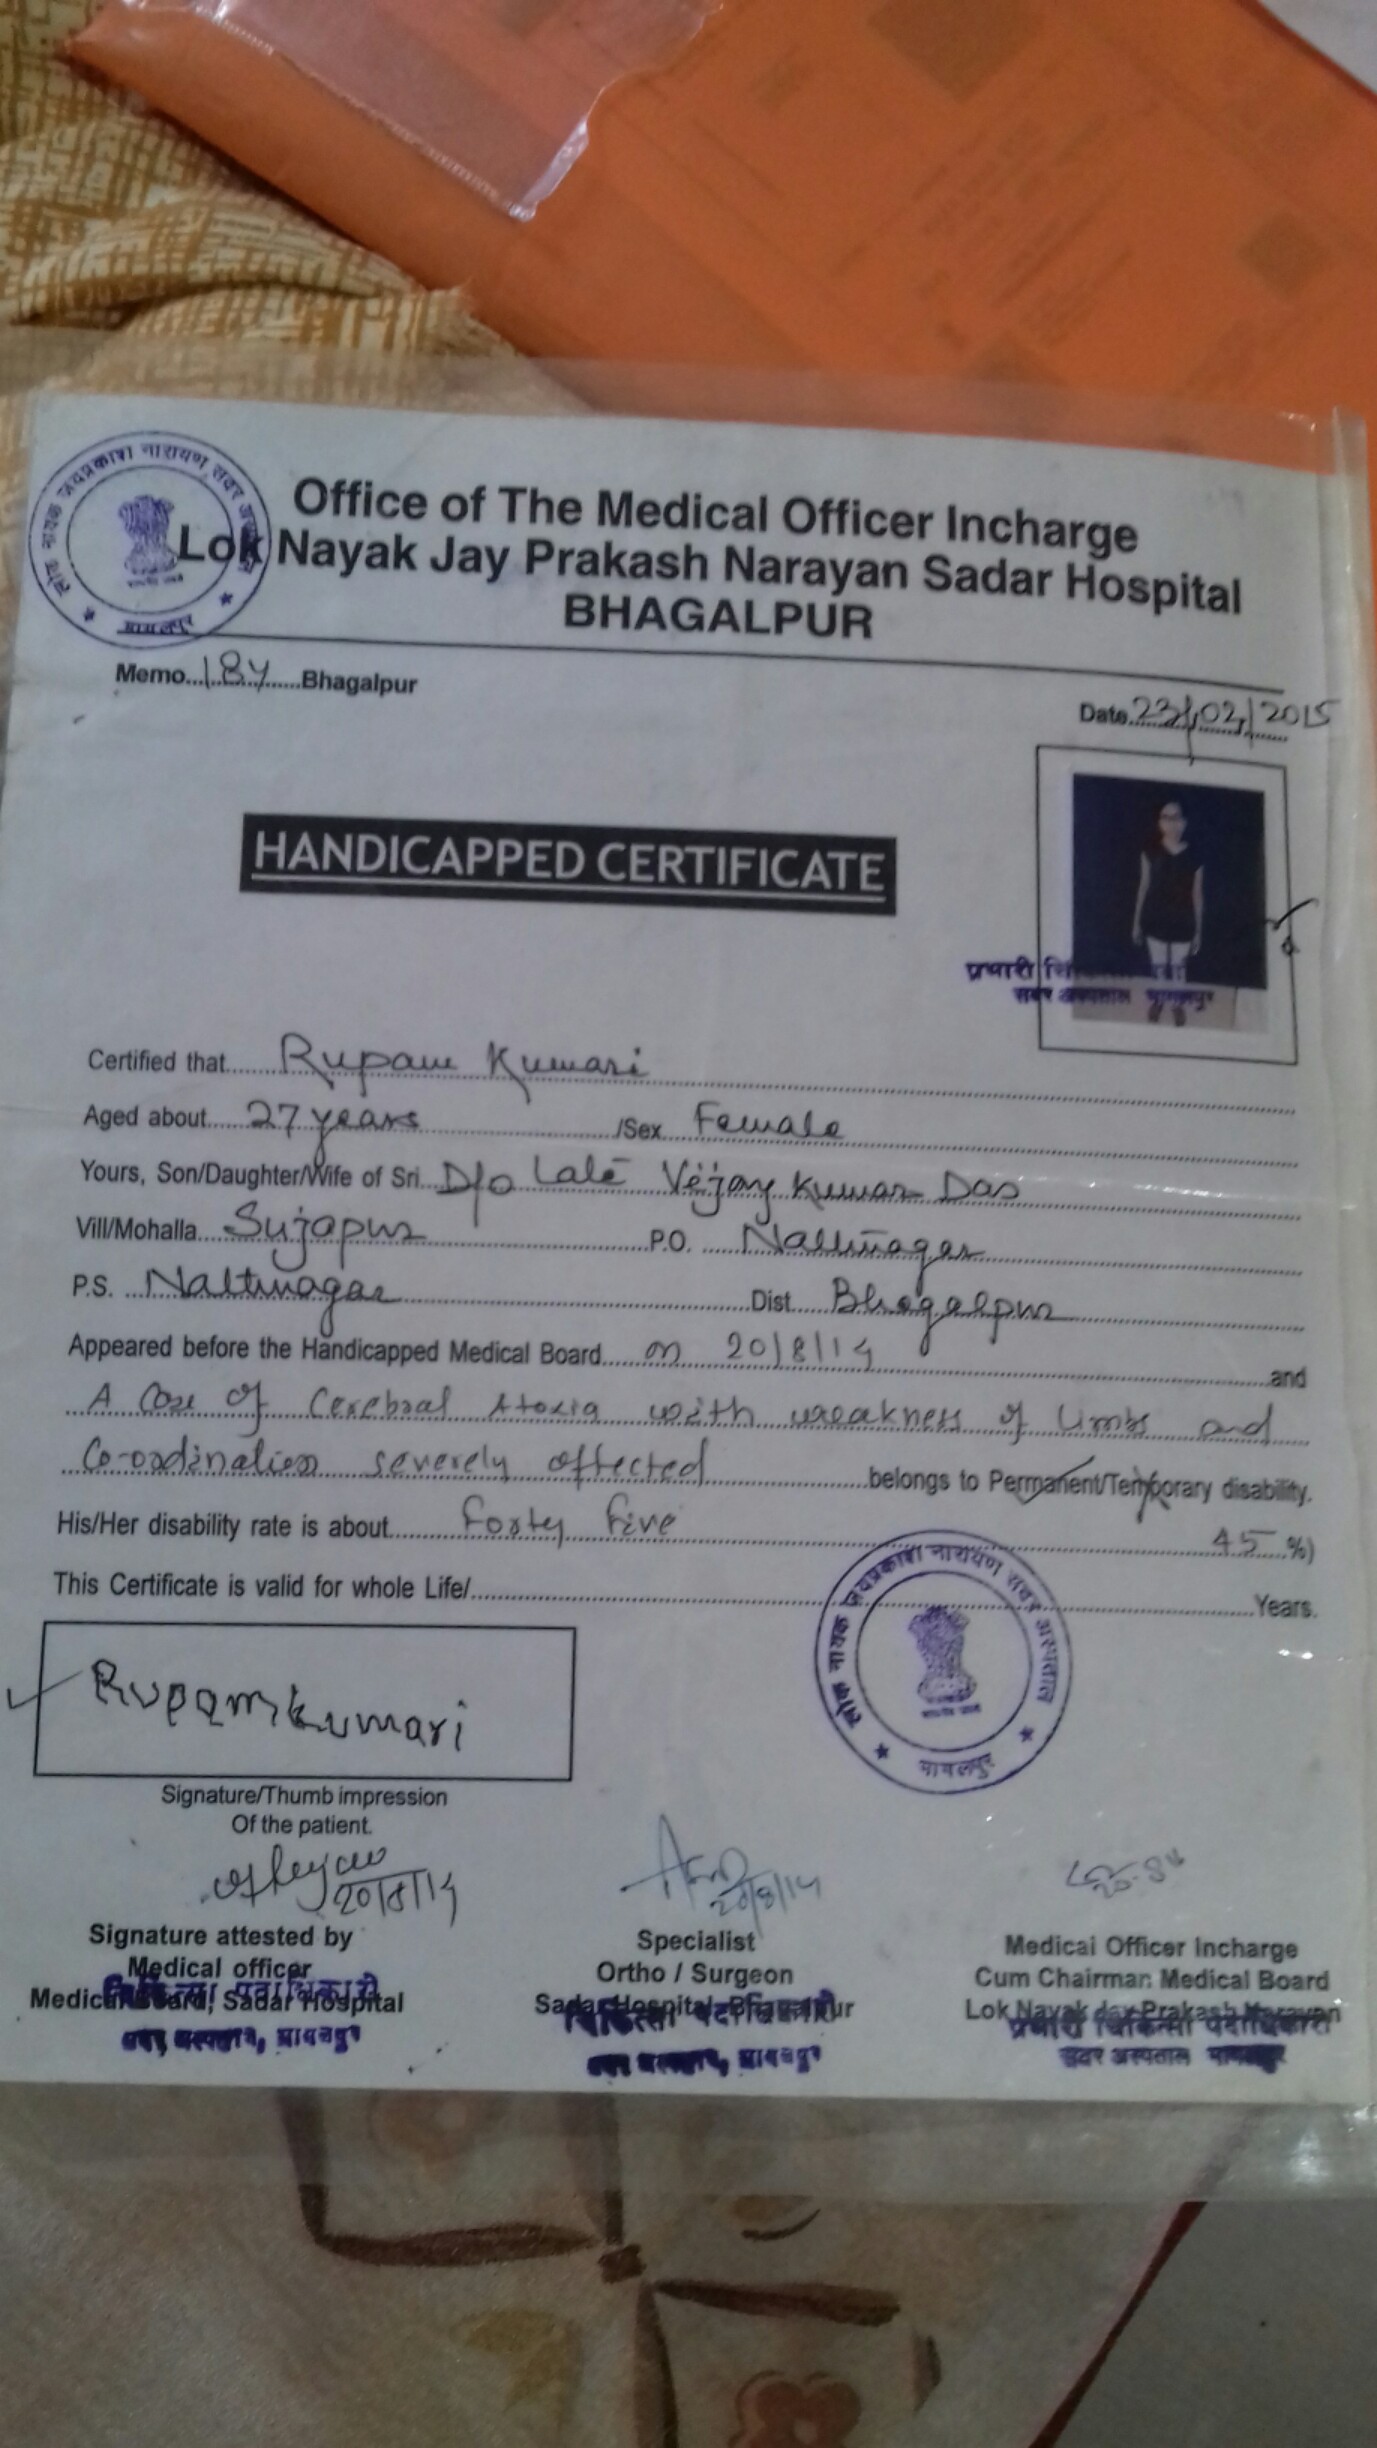 लोक नायक जयप्रकाश नारायण सदर अस्पताल
भागलपुर
Office of The Medical Officer Incharge
Lok Nayak Jay Prakash Narayan Sadar Hospital
BHAGALPUR
Memo...184......Bhagalpur
Date..23/02/2015
HANDICAPPED CERTIFICATE
प्रभारी
सदर अस्पताल भागलपुर
Certified that......Rupam Kumari
Aged about.....27 years /Sex Female
Yours, Son/Daughter/Wife of Sri...D/o Late Vijay Kumar Das
Vill/Mohalla....Sujapur P.O. Nathnagar
P.S. ...Nathnagar Dist.....Bhagalpur
Appeared before the Handicapped Medical Board.....on 20/8/14 and
A Case of Cerebral Ataxia with weakness of limbs and
Co-ordination severely affected belongs to Permanent/Temporary disability.
His/Her disability rate is about.....forty five 45 %)
This Certificate is valid for whole Life/ Years.
लोक नायक जयप्रकाश नारायण सदर अस्पताल
भागलपुर
Rupam kumari
Signature/Thumb impression
Of the patient.
20/8/14
20/8/14
Signature attested by
Medical officer
Medical Board, Sadar Hospital
चिकित्सा पदाधिकारी
सदर अस्पताल, भागलपुर
Specialist
Ortho / Surgeon
Sadar Hospital, Bhagalpur
चिकित्सा पदाधिकारी
सदर अस्पताल, भागलपुर
Medical Officer Incharge
Cum Chairman Medical Board
Lok Nayak Jay Prakash Narayan
प्रभारी चिकित्सा पदाधिकारी
सदर अस्पताल भागलपुर